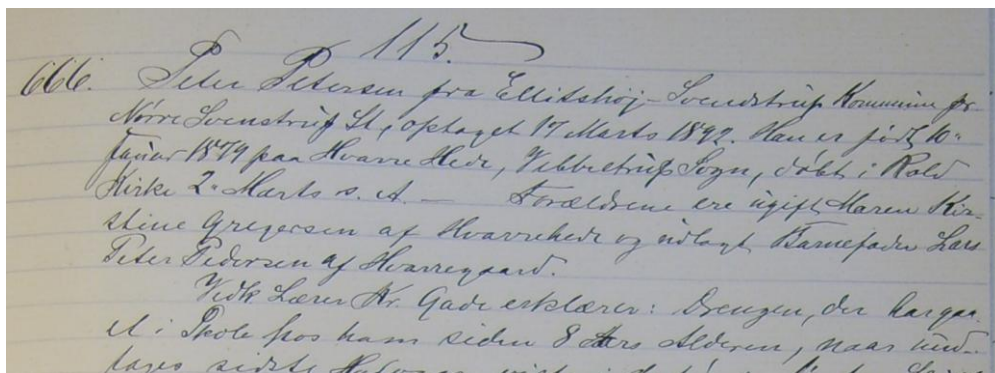 115.
666. Peter Petersen fra Ellitshöj-Svendstrup Kommune pr.
Nörre Svenstrup St, optaget 17 Marts 1892. Han er födt 10.
Januar 1879 paa Hvarre Hede, Vebbestrup Sogn, döbt i Rold
Kirke 2. Marts s. A. — Forældrene ere ugift Maren Kir-
stine Gregersen af Hvarrehede og udlagt Barnefader Lars
Peter Pedersen af Hvarregaard.
Vedk Lærer Kr. Gade erklærer: Drengen, der har gaa-
et i Skole hos ham siden 8 Aars Alderen, naar und-
tages sidste Halvaar